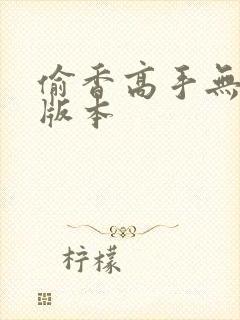 偷香高手無
版本
柠檬